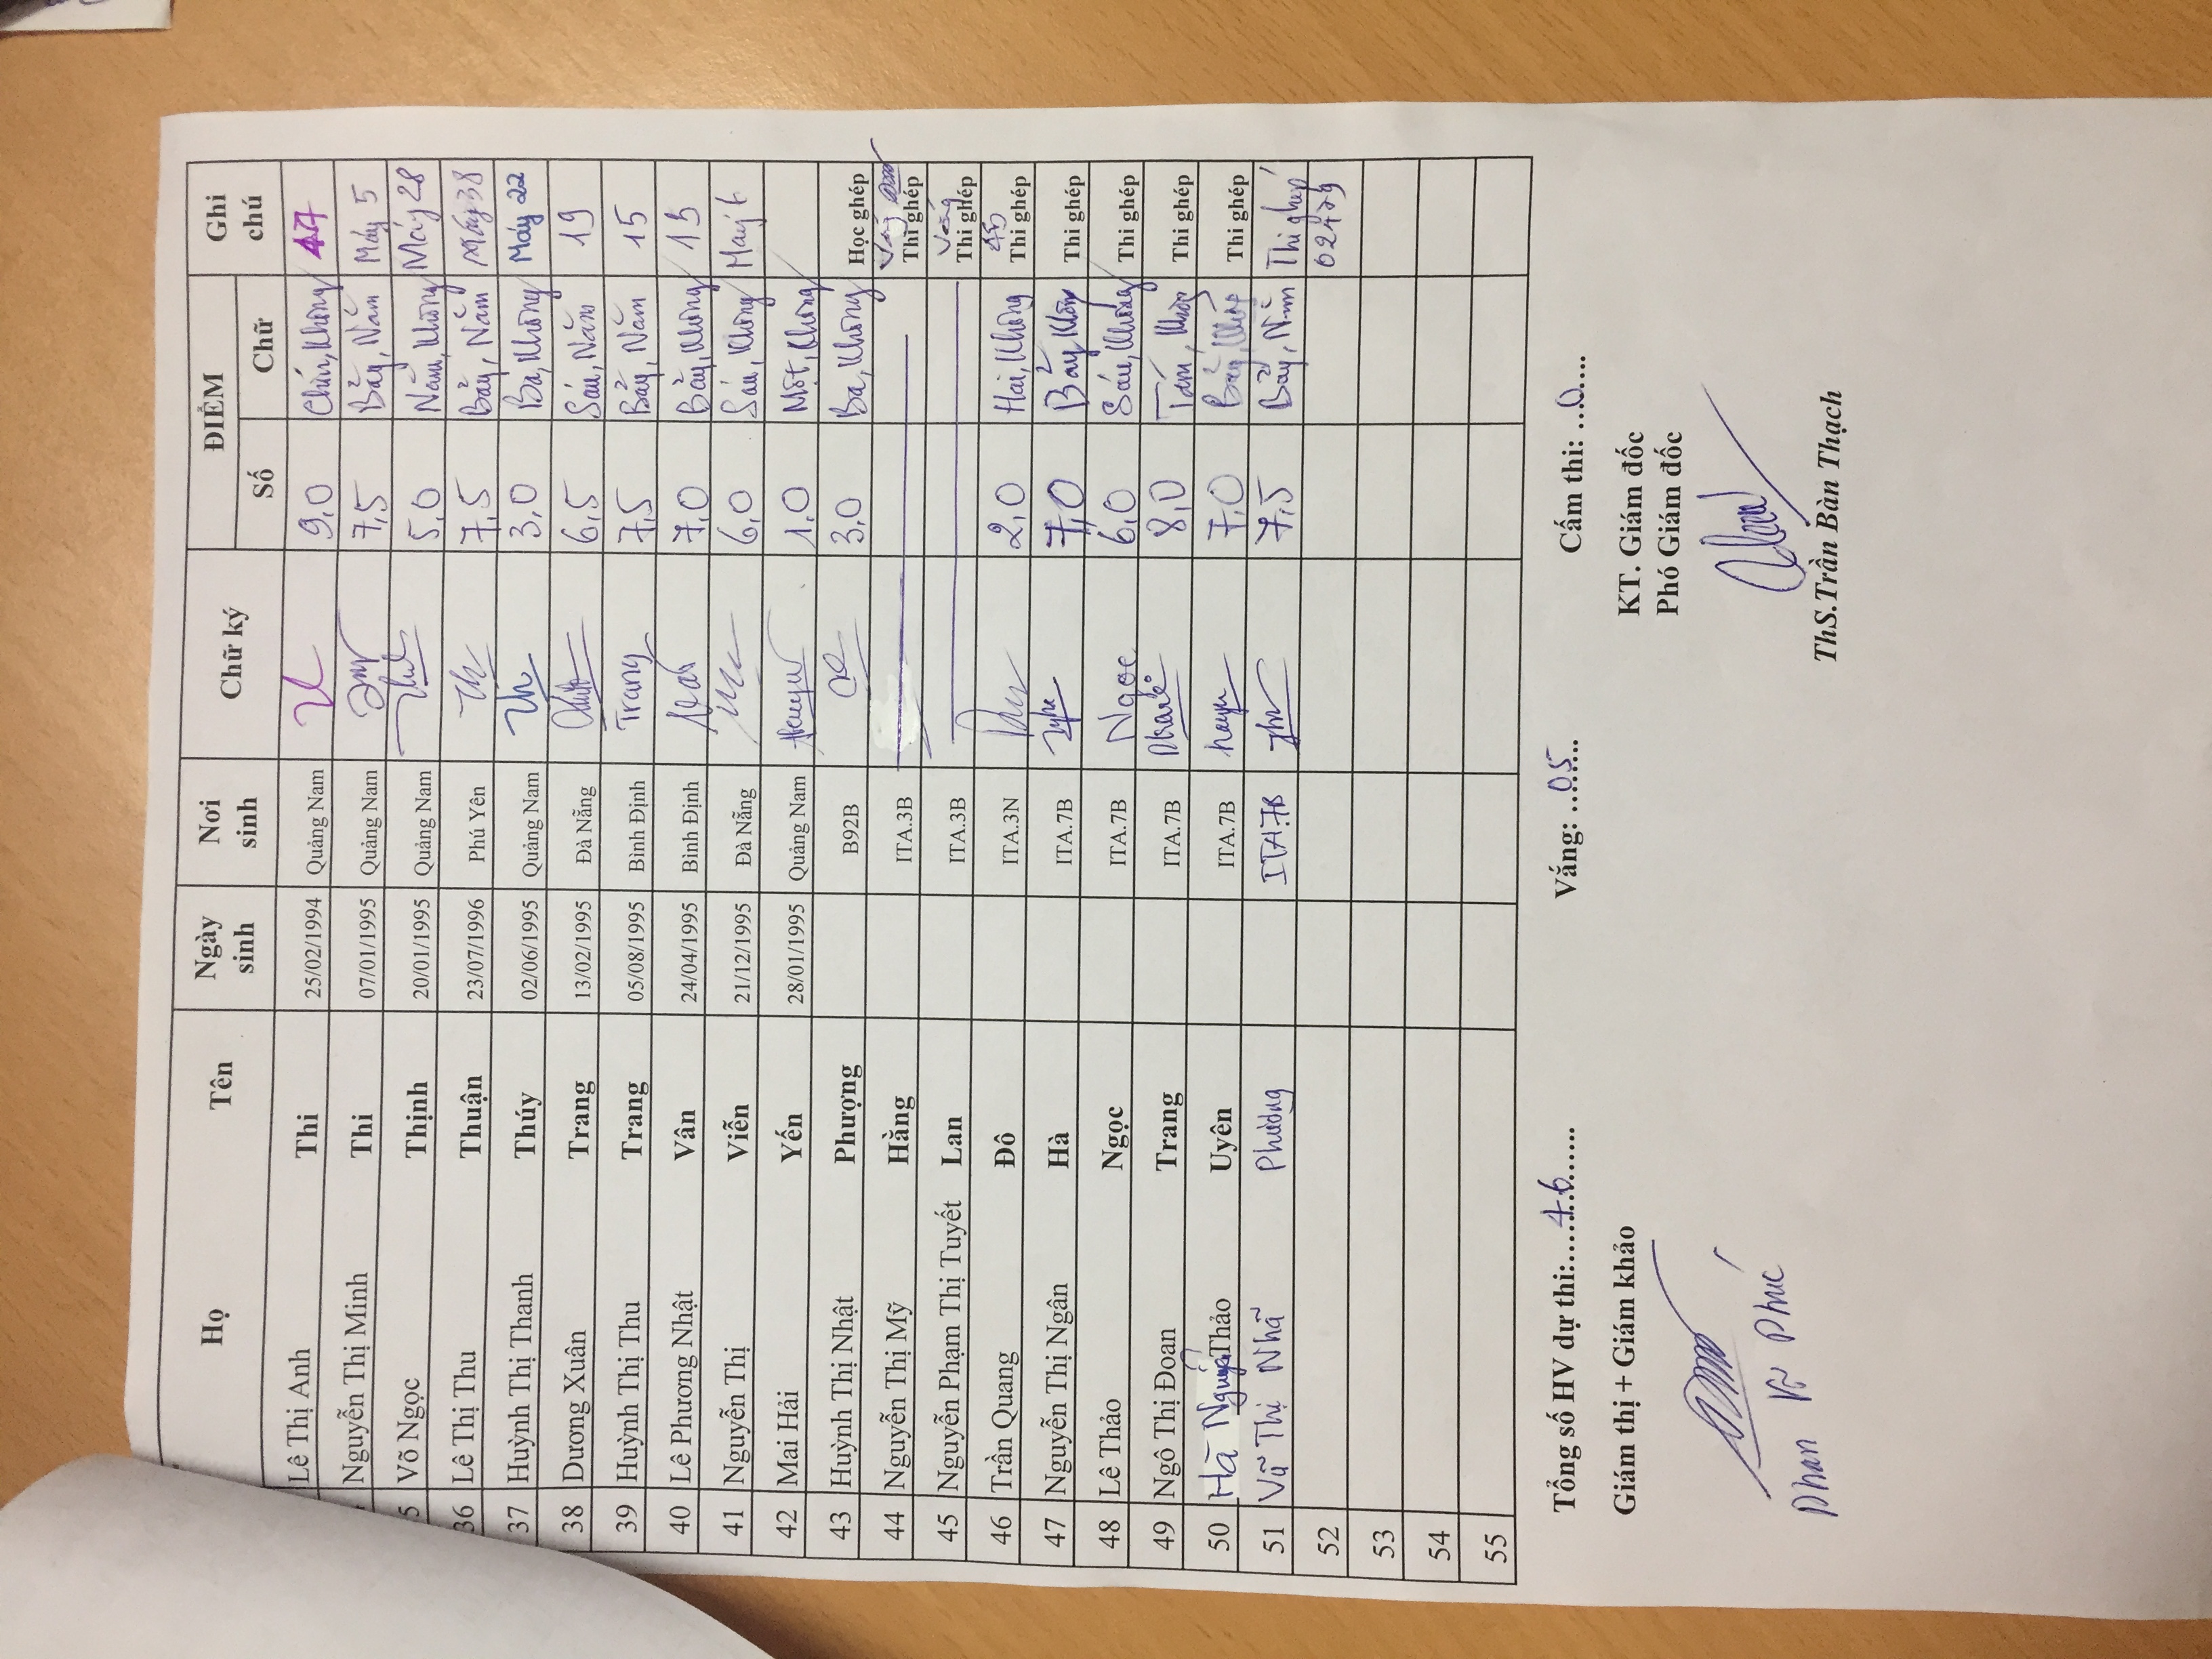 Họ Tên Ngày sinh Nơi sinh Chữ ký ĐIỂM Ghi chú
Số Chữ
Lê Thị Anh Thi 25/02/1994 Quảng Nam 9,0 Chín, Không 47
Nguyễn Thị Minh Thi 07/01/1995 Quảng Nam 7,5 Bảy, Năm Máy 5
5 Võ Ngọc Thịnh 20/01/1995 Quảng Nam 5,0 Năm, Không Máy 28
36 Lê Thị Thu Thuận 23/07/1996 Phú Yên Th 7,5 Bảy, Năm Máy 38
37 Huỳnh Thị Thanh Thúy 02/06/1995 Quảng Nam Th 3,0 Ba, Không Máy 22
38 Dương Xuân Trang 13/02/1995 Đà Nẵng 6,5 Sáu, Năm 19
39 Huỳnh Thị Thu Trang 05/08/1995 Bình Định Trang 7,5 Bảy, Năm 15
40 Lê Phương Nhật Vân 24/04/1995 Bình Định 7,0 Bảy, Không 13
41 Nguyễn Thị Viễn 21/12/1995 Đà Nẵng 6,0 Sáu, Không Máy 6
42 Mai Hải Yến 28/01/1995 Quảng Nam 1,0 Một, Không
43 Huỳnh Thị Nhật Phượng B92B 3,0 Ba, Không Học ghép
44 Nguyễn Thị Mỹ Hằng ITA.3B Vắng Thi ghép
45 Nguyễn Phạm Thị Tuyết Lan ITA.3B Vắng Thi ghép
46 Trần Quang Đô ITA.3N 2,0 Hai, Không Thi ghép
47 Nguyễn Thị Ngân Hà ITA.7B 7,0 Bảy, Không Thi ghép
48 Lê Thảo Ngọc ITA.7B Ngọc 6,0 Sáu, Không Thi ghép
49 Ngô Thị Đoan Trang ITA.7B 8,0 Tám, Không Thi ghép
50 Hà Nguyên Thảo Uyên ITA.7B 7,0 Bảy, Không Thi ghép
51 Vũ Thị Nhã Phương ITA.7B 7,5 Bảy, Năm Thi ghép
52 02479
53
54
55
Tổng số HV dự thi:....46...... Vắng: ..05..... Cấm thi: ...0....
Giám thị + Giám khảo KT. Giám đốc
Phó Giám đốc
Phan Phúc ThS.Trần Bàn Thạch